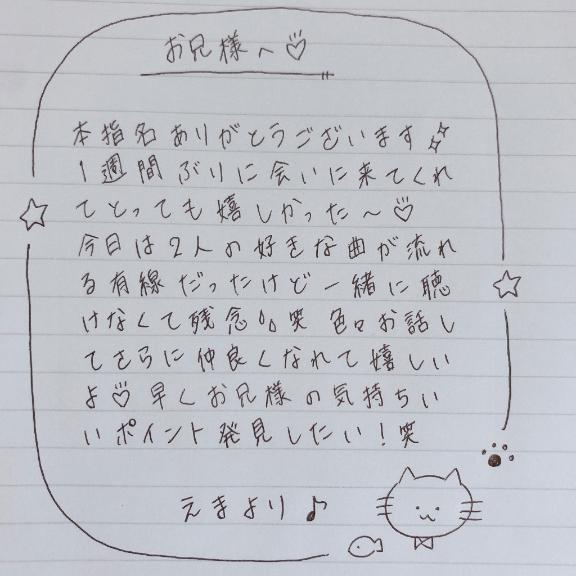 お兄様へ♡
本指名ありがとうございます✨
1週間ぶりに会いに来てくれ
てとっても嬉しかった〜♡
今日は2人の好きな曲が流れ
る有線だったけど一緒に聴
けなくて残念💦笑 色々お話し
てさらに仲良くなれて嬉しい
よ♡早くお兄様の気持ちい
いポイント発見したい!笑
えまより♪